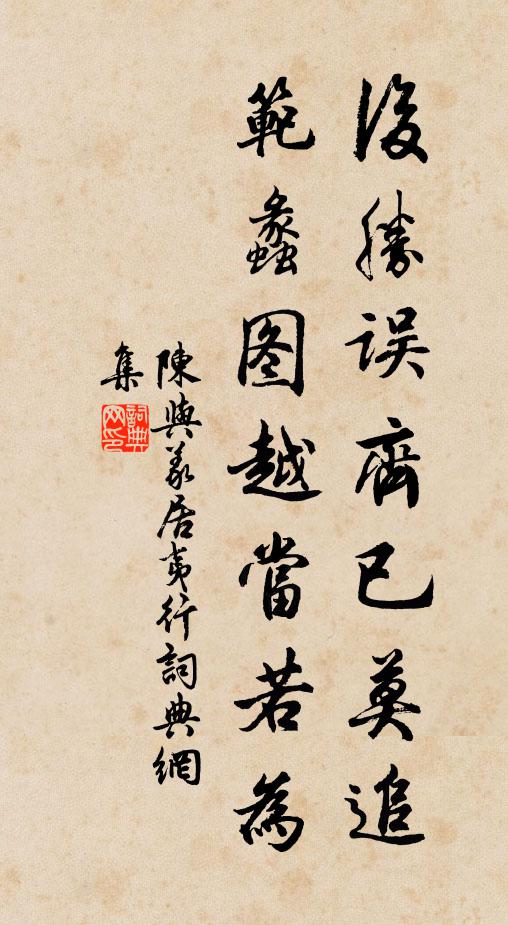 後勝誤齊已莫追
範蠡图越當若為
陳與義居夷行詞典網
集
詞典网印